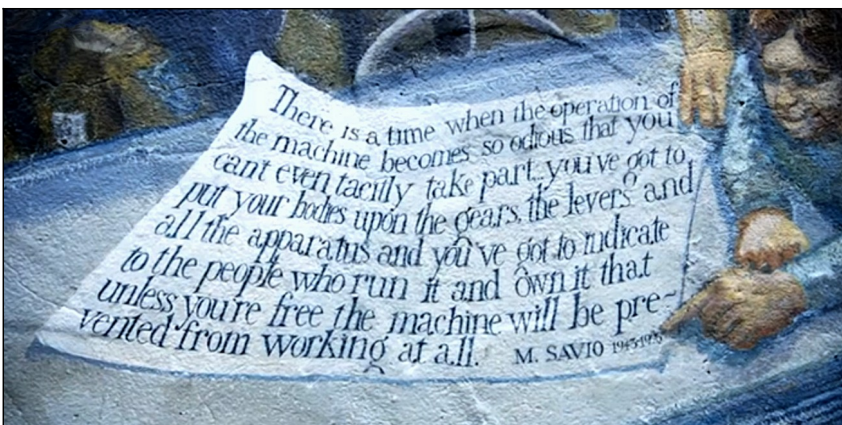 There is a time when the operation of
the machine becomes so odious that you
cant even tacitly take part..you've got to
put your bodies upon the gears, the levers and
all the apparatus and you've got to indicate
to the people who run it and own it that
unless you're free the machine will be pre-
vented from working at all. M. SAVIO